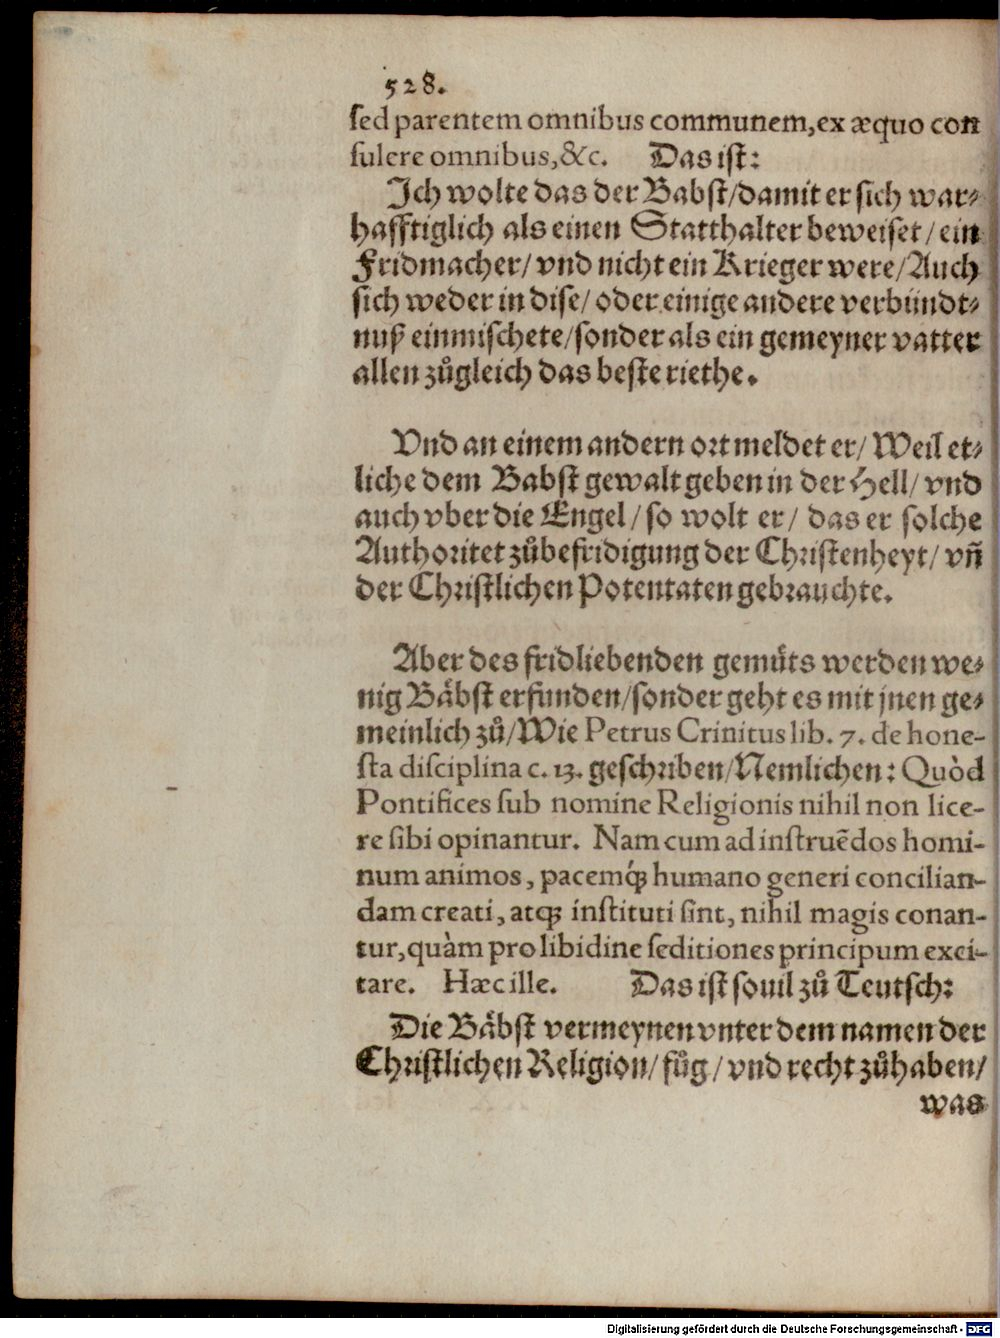 528.
sed parentem omnibus communem, ex æquo con
sulere omnibus, &c. Das ist:
Ich wolte das der Babst/damit er sich war⸗
hafftiglich als einen Statthalter beweiset/ ein
Fridmacher/ vnd nicht ein Krieger were/ Auch
sich weder in dise/ oder einige andere verbündt⸗
nuß einmischete/sonder als ein gemeyner vatter
allen zůgleich das beste riethe.
Vnd an einem andern ort meldet er/ Weil et⸗
liche dem Babst gewalt geben in der Hell/ vnd
auch vber die Engel/ so wolt er/ das er solche
Authoritet zůbefridigung der Christenheyt/ vñ
der Christlichen Potentaten gebrauchte.
Aber des fridliebenden gemüts werden we⸗
nig Bäbst erfunden/sonder geht es mit jnen ge⸗
meinlich zů/Wie Petrus Crinitus lib. 7. de hone-
sta disciplina c. 13. geschriben/Nemlichen: Quòd
Pontifices sub nomine Religionis nihil non lice-
re sibi opinantur. Nam cum ad instruēdos homi-
num animos, pacemq́ꝫ humano generi concilian-
dam creati, atqꝫ instituti sint, nihil magis conan-
tur, quàm pro libidine seditiones principum exci-
tare. Hæc ille. Das ist souil zů Teutsch:
Die Bäbst vermeynen vnter dem namen der
Christlichen Religion/ fůg/ vnd recht zůhaben/
was
Digitalisierung gefördert durch die Deutsche Forschungsgemeinschaft - DFG